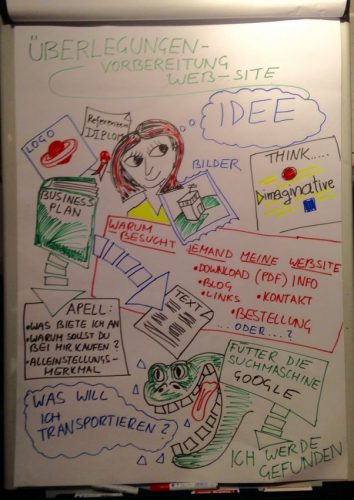 ÜBERLEGUNGEN-
VORBEREITUNG
WEB-SITE
IDEE
Referenzen
DIPLOM
LOGO
BILDER
THINK.....
imaginative
BUSINESS
PLAN
WARUM BESUCHT JEMAND MEINE WEBSITE
• DOWNLOAD (PDF) INFO
• BLOG
• LINKS
• KONTAKT
• BESTELLUNG
...ODER...?
TEXT
APELL:
• WAS BIETE ICH AN
• WARUM SOLLST DU
BEI MIR KAUFEN?
• ALLEINSTELLUNGS-
MERKMAL
FUTTER DIE
SUCHMASCHINE
GOOGLE
WAS WILL
ICH
TRANSPORTIEREN?
ICH WERDE
GEFUNDEN